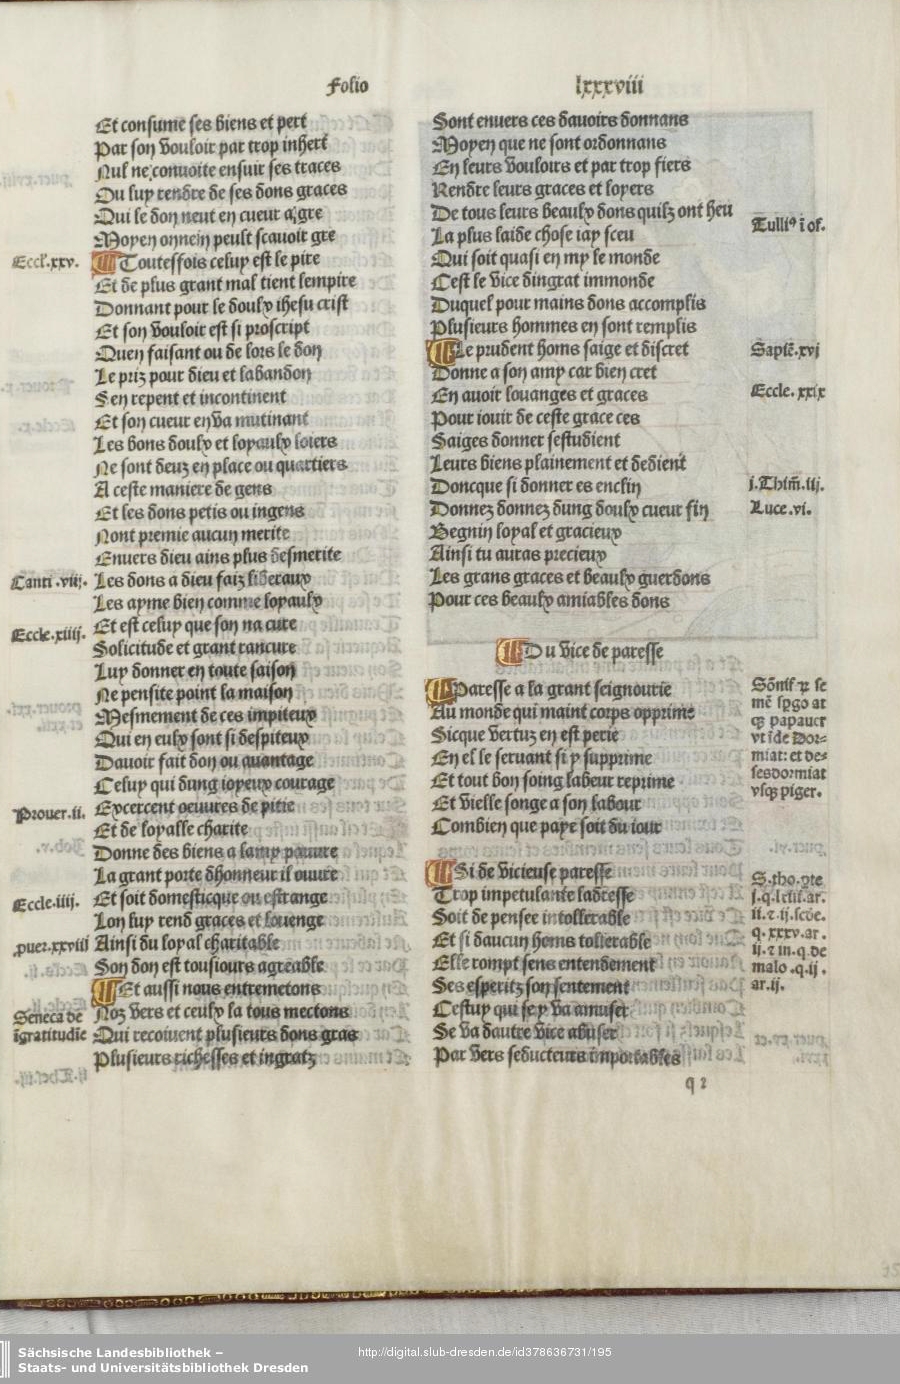 Folio
lxxxviii
Et consume ses biens et pert
Par son vouloir par trop inhert
Nul ne convoite ensuir ses traces
Ou luy rendre de ses dons graces
Qui le don neut en cueur agre
Moyen onnein peult scavoir gre
Eccl'.xxv.
Toutesfois celuy est le pire
Et de plus grant mal tient lempire
Donnant pour le doulx ihesu crist
Et son vouloir est si proscript
Quen faisant ou de lors le don
Le priz pour dieu et labandon
Sen repent et incontinent
Et son cueur en va mutinant
Les bons doulx et loyaulx loiers
Ne sont deuz en place ou quartiers
A ceste maniere de gens
Et les dons petis ou ingens
Nont premie aucun merite
Envers dieu ains plus desmerite
Canti .viij.
Les dons a dieu faiz liberaux
Les ayme bien comme loyaulx
Eccle.xiiij.
Et est celuy que son na cure
Solicitude et grant rancure
Luy donner en toute saison
Ne pensite point la maison
Mesmement de ces impiteux
Qui en eulx sont si despiteux
Davoir fait don ou avantage
Celuy qui dung ioyeux courage
Prouer.ii.
Excercent oeuvres de pitie
Et de loyalle charite
Donne des biens a lamy pauvre
La grant porte dhonneur il ouvre
Eccle.iiij.
Et soit domesticque ou estrange
Lon luy rend graces et louenge
puer.xxviii
Ainsi du loyal charitable
Son don est tousiours agreable
Et aussi nous entremetons
Seneca de īgratitudīe
Noz vers et ceulx la tous mectons
Qui recoivent plusieurs dons gras
Plusieurs richesses et ingratz
Sont envers ces davoirs donnans
Moyen que ne sont ordonnans
En leurs vouloirs et par trop fiers
Rendre leurs graces et loyers
De tous leurs beaulx dons quilz ont heu
Tulliꝰ ī of.
La plus laide chose iay sceu
Qui soit quasi en my le monde
Cest le vice dingrat immonde
Duquel pour mains dons accomplis
Plusieurs hommes en sont remplis
Le prudent homs saige et discret
Sapiē.xvj
Donne a son amy car bien cret
En avoir louanges et graces
Eccle. xxix
Pour iouir de ceste grace ces
Saiges donner sestudient
Leurs biens plainement et dedient
Doncque si donner es enclin
j.Thim̄.iij.
Donnez donnez dung doulx cueur fin
Luce.vi.
Begnin loyal et gracieux
Ainsi tu auras precieux
Les grans graces et beaulx guerdons
Pour ces beaulx amiables dons
Du vice de paresse
Paresse a la grant seignourie
Au monde qui maint corps opprime
Sicque vertuz en est perie
En el le servant si y supprime
Et tout bon soing labeur reprime
Et vielle songe a son labour
Combien que paye soit du iour
mē spgo at
qz papauer
vt īde dor-
miat: et de-
sesdormiat
vsqz piger.
Si de vicieuse paresse
Trop impetulante ladresse
Soit de pensee intollerable
Et si daucun homs tollerable
Elle rompt sens entendement
Ses esperitz son sentement
Cestuy qui se y va amuser
Se va dautre vice abuser
Par vers seducteurs importables
S.tho.
ii.
q. xxxv.ar.
ij.
malo .q.ij.
ar.ij.
q 2
Sächsische Landesbibliothek –
Staats- und Universitätsbibliothek Dresden
http://digital.slub-dresden.de/id378636731/195